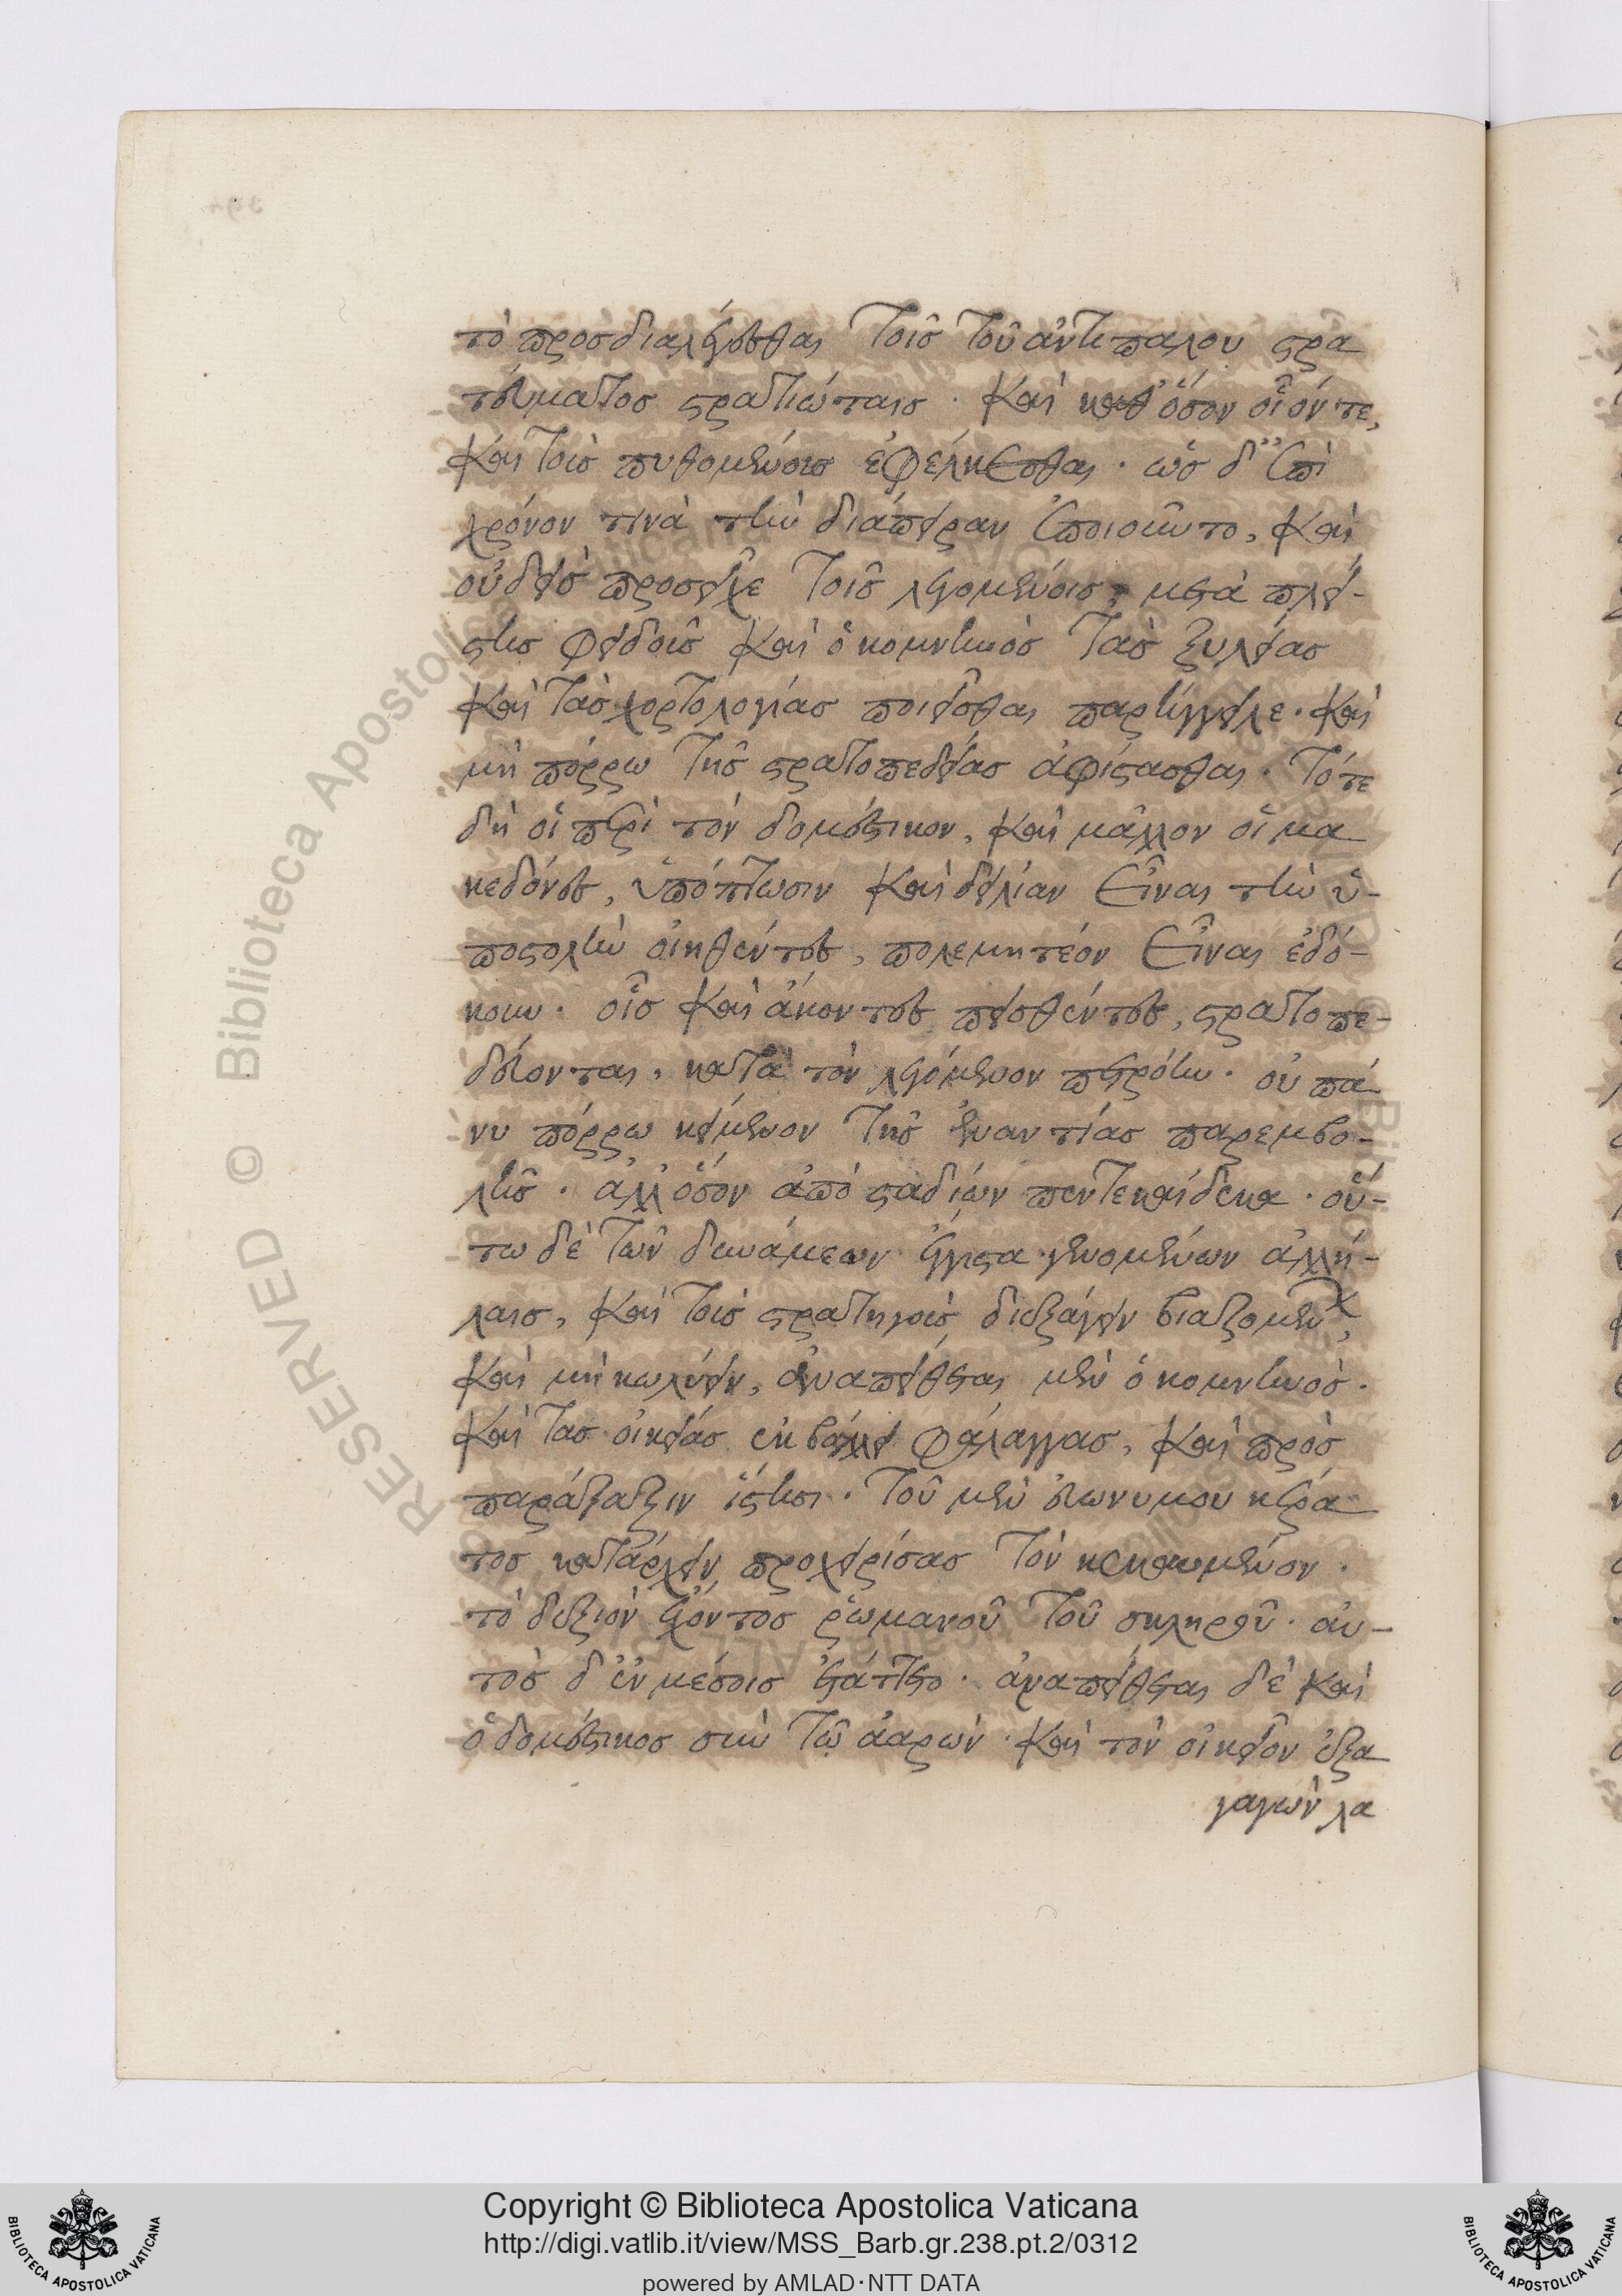 τὸ προσδιαλέγεσθαι τοῖς τοῦ ἀντιπάλου στρα
τεύματος στρατιώταις · καὶ καθ ὅσον οἷόν τε,
καὶ τοὺς πυθομένους ἐφέλκεσθαι · ὡς δ' ἐπὶ
χρόνον τινὰ τὴν διάπειραν ἐποιοῦντο, καὶ
οὐδεὶς προσεῖχε τοῖς λεγομένοις, μετὰ πλεί-
στης φειδοῦς καὶ ὁ κομνηνὸς τὰς ξυλείας
καὶ τὰς χορτολογίας ποιεῖσθαι παρήγγειλε · καὶ
μὴ πόρρω τῆς στρατοπεδείας ἀφίστασθαι · τότε
δὴ οἱ περὶ τὸν δομέστικον, καὶ μᾶλλον οἱ μα
κεδόνες, ὑπόπτωσιν καὶ δειλίαν εἶναι τὴν ὑ-
ποστολὴν οἰηθέντες, πολεμητέον εἶναι ἐδό-
κουν · οἷς καὶ ἄκοντες πεισθέντες, στρατοπε-
δεύονται, κατὰ τὸν λεγόμενον πετρόην · οὐ πά
νυ πόρρω κείμενον τῆς ἐναντίας παρεμβο-
λῆς · ἀλλ ὅσον ἀπὸ σταδίων πεντεκαίδεκα · οὕ-
τω δὲ τῶν δυνάμεων ἔγγιστα γενομένων ἀλλή-
λαις, καὶ τοὺς στρατηγοὺς διεξάγειν βιαζομένων,
καὶ μὴ κωλύειν, ἀναπείθεται μὲν ὁ κομνηνὸς ·
καὶ τὰς οἰκείας ἐκβάλλει φάλαγγας, καὶ πρὸς
παράταξιν ἵστησι · τοῦ μὲν εὐωνύμου κέρα
τος κατάρχειν προχειρίσας τὸν κεκαυμένον ·
τὸ δεξιὸν ἔχοντος ῥωμανοῦ τοῦ σκληροῦ · αὐ-
τὸς δ' ἐν μέσοις ἐτάττετο · ἀναπείθεται δὲ καὶ
ὁ δομέστικος σὺν τῷ ἀαρὼν · καὶ τὸν οἰκεῖον ἐξα
γαγὼν λα
Copyright © Biblioteca Apostolica Vaticana
http://digi.vatlib.it/view/MSS_Barb.gr.238.pt.2/0312
powered by AMLAD·NTT DATA